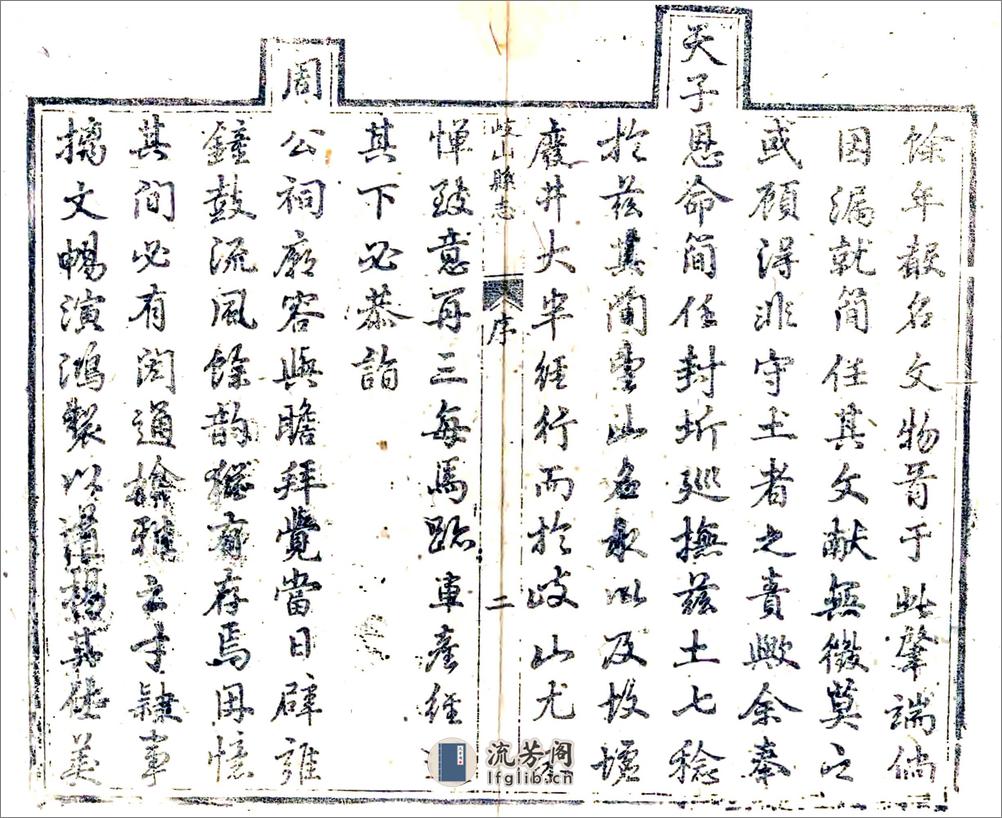 餘年聲名文物胥于此肇端倘
因漏就簡任其文献無徵莫之
或顧得非守土者之責歟余奉
天子恩命簡任封圻廵撫兹土七稔
於兹其間靈山名水以及故墟
廢井大半經行而於岐山尤
岐山縣志 序 二
惮致意再三每馬跡車塵經
其下必恭詣
周公祠廟容與瞻拜覺當日辟雍
鐘鼓流風餘韵猶有存焉因憶
其間必有閎通檢雅之才隷事
摛文暢演鴻製以 揚其佳美
流芳阁
lfglib.cn